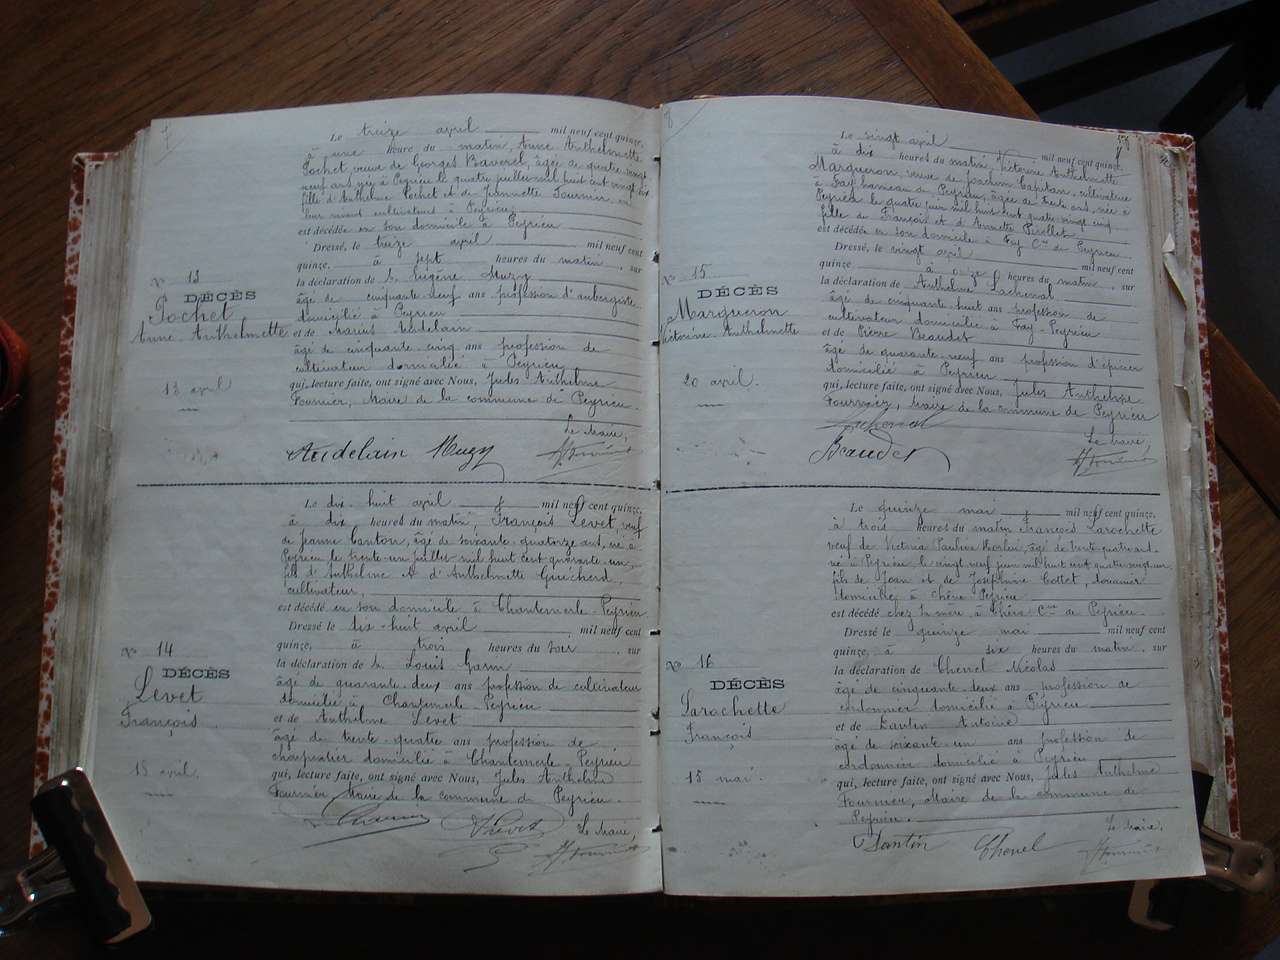 7
Le treize avril mil neuf cent quinze,
à une heure du matin, Anne Anthelmette
Pochet veuve de Georges Baverel, âgée de quatre vingt
neuf ans née à Peyrieu le quatre juillet mil huit cent vingt six
fille d'Anthelme Pochet et de Jeannette Fournier, en
leur vivant cultivateurs à Peyrieu,
est décédée en son domicile à Peyrieu
Dressé, le treize avril mil neuf cent
quinze, à sept heures du matin, sur
la déclaration de s. Eugène Mugy
âgé de cinquante neuf ans profession d'aubergiste
domicilié à Peyrieu
et de Marius Audelain
âgé de cinquante-cinq ans profession de
cultivateur domicilié à Peyrieu
qui, lecture faite, ont signé avec Nous, Jules Anthelme
Fournier, Maire de la commune de Peyrieu.
Le Maire,
Audelain Mugy
N° 13
DÉCÈS
Pochet
Anne Anthelmette
13 avril
Le dix-huit avril mil neuf cent quinze,
à dix heures du matin, François Levet, veuf
de Jeanne Canton, âgé de soixante-quatorze ans, né à
Peyrieu le trente-un juillet mil huit cent quarante-un,
fils d'Anthelme et d'Anthelmette Guicherd,
cultivateur,
est décédé en son domicile à Chantemerle-Peyrieu
Dressé le dix-huit avril, mil neuf cent
quinze, à trois heures du soir, sur
la déclaration de s. Louis
âgé de quarante-deux ans profession de cultivateur
domicilié à Chantemerle Peyrieu
et de Anthelme Levet
âgé de trente-quatre ans profession de
charpentier domicilié à Chantemerle-Peyrieu
qui, lecture faite, ont signé avec Nous, Jules Anthelme
Fournier Maire de la commune de Peyrieu.
Le Maire,
Levet
N° 14
DÉCÈS
Levet
François
18 avril.
8
Le vingt avril mil neuf cent quinze,
à dix heures du matin, Victorine Anthelmette
Margueron, veuve de Joachim Capitan, cultivatrice
à Fay hameau de Peyrieu, âgée de trente ans, née à
Peyrieu le quatre juin mil huit cent quatre-vingt cinq
fille de François et d'Annette Pirollet
est décédée en son domicile à Fay Cne de Peyrieu
Dressé, le vingt avril mil neuf cent
quinze à onze heures du matin, sur
la déclaration de Anthelme Lachenal
âgé de cinquante huit ans profession de
cultivateur domicilié à Fay-Peyrieu
et de Pierre Beaudet
âgé de quarante-neuf ans profession d'épicier
domicilié à Peyrieu
qui, lecture faite, ont signé avec Nous, Jules Anthelme
Fournier, Maire de la commune de Peyrieu
Le Maire,
Lachenal
Beaudet
N° 15
DÉCÈS
Margueron
Victorine Anthelmette
20 avril.
Le quinze mai mil neuf cent quinze,
à trois heures du matin François Larochette
veuf de Victoria Pauline Nicolai, âgé de trente quatre ans
né à Peyrieu le vingt neuf juin mil huit cent quatre vingt un
fils de Jean et de Joséphine Cottet, douanier
domicilié à Chêne Peyrieu
est décédé chez sa mère à Chêne Cne de Peyrieu.
Dressé le quinze mai mil neuf cent
quinze, à six heures du matin, sur
la déclaration de Chenel Nicolas
âgé de cinquante-deux ans profession de
cordonnier domicilié à Peyrieu
et de Dantin Antoine
âgé de soixante-un ans profession de
cordonnier domicilié à Peyrieu
qui, lecture faite, ont signé avec Nous, Jules Anthelme
Fournier, Maire de la commune de
Peyrieu.
Le Maire,
Dantin Chenel
N° 16
DÉCÈS
Larochette
François
15 mai.